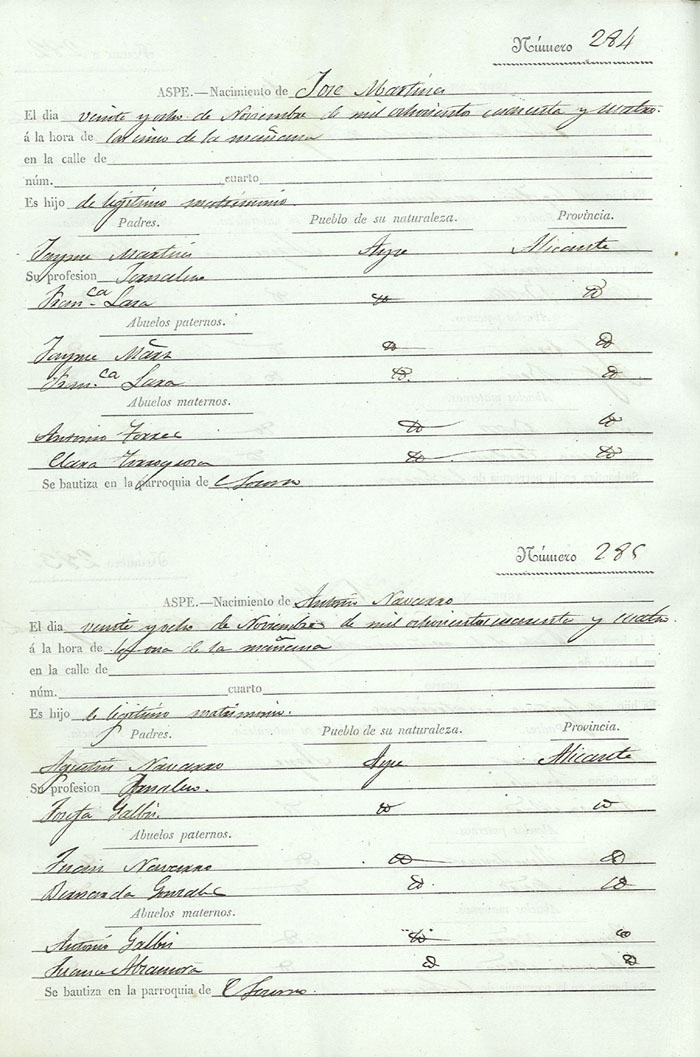 Número 284
ASPE.—Nacimiento de Jose Martines
El dia veinte y ocho de Noviembre de mil ochocientos cuarenta y cuatro.
á la hora de las cinco de la mañana
en la calle de
núm. cuarto
Es hijo de legitimo matrimonio.
Padres. Pueblo de su naturaleza. Provincia.
Jayme Martines Aspe Alicante
Su profesion Jornalero
Fran.ca Lara
Abuelos paternos.
Jayme
Fran.ca Lara
Abuelos maternos.
Antonio Torres
Clara
Se bautiza en la parroquia de
Número 285
ASPE.—Nacimiento de Antonio Navarro
El dia veinte y ocho de Noviembre de mil ochocientos cuarenta y cuatro.
á la hora de la una de la mañana
en la calle de
núm. cuarto
Es hijo de legitimo matrimonio.
Padres. Pueblo de su naturaleza. Provincia.
Agustin Navarro Aspe Alicante
Su profesion Jornalero.
Josefa Galbis
Abuelos paternos.
Juan Navarro
Gonzalez
Abuelos maternos.
Antonio Galbis
Se bautiza en la parroquia de